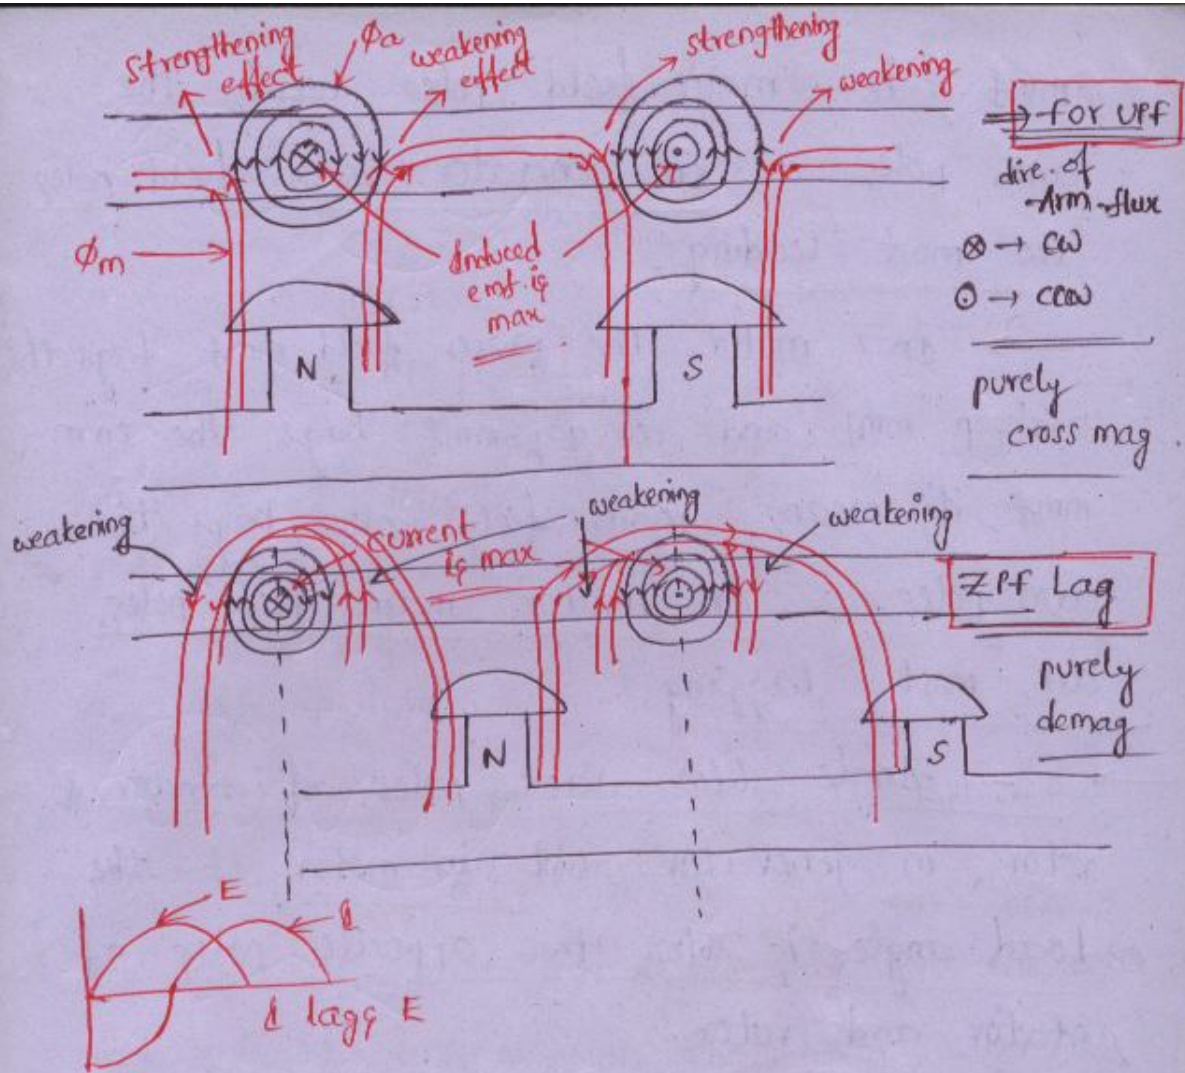 strengthening
effect
Φa
weakening
effect
strengthening
weakening
→ for UPF
dire. of
Arm-flux
⊗ → CW
⊙ → CCW
purely
cross mag
Φm
Induced
emf is
max
N
S
weakening
current
is max
weakening
weakening
ZPf Lag
purely
demag
N
S
E
I
I lags E